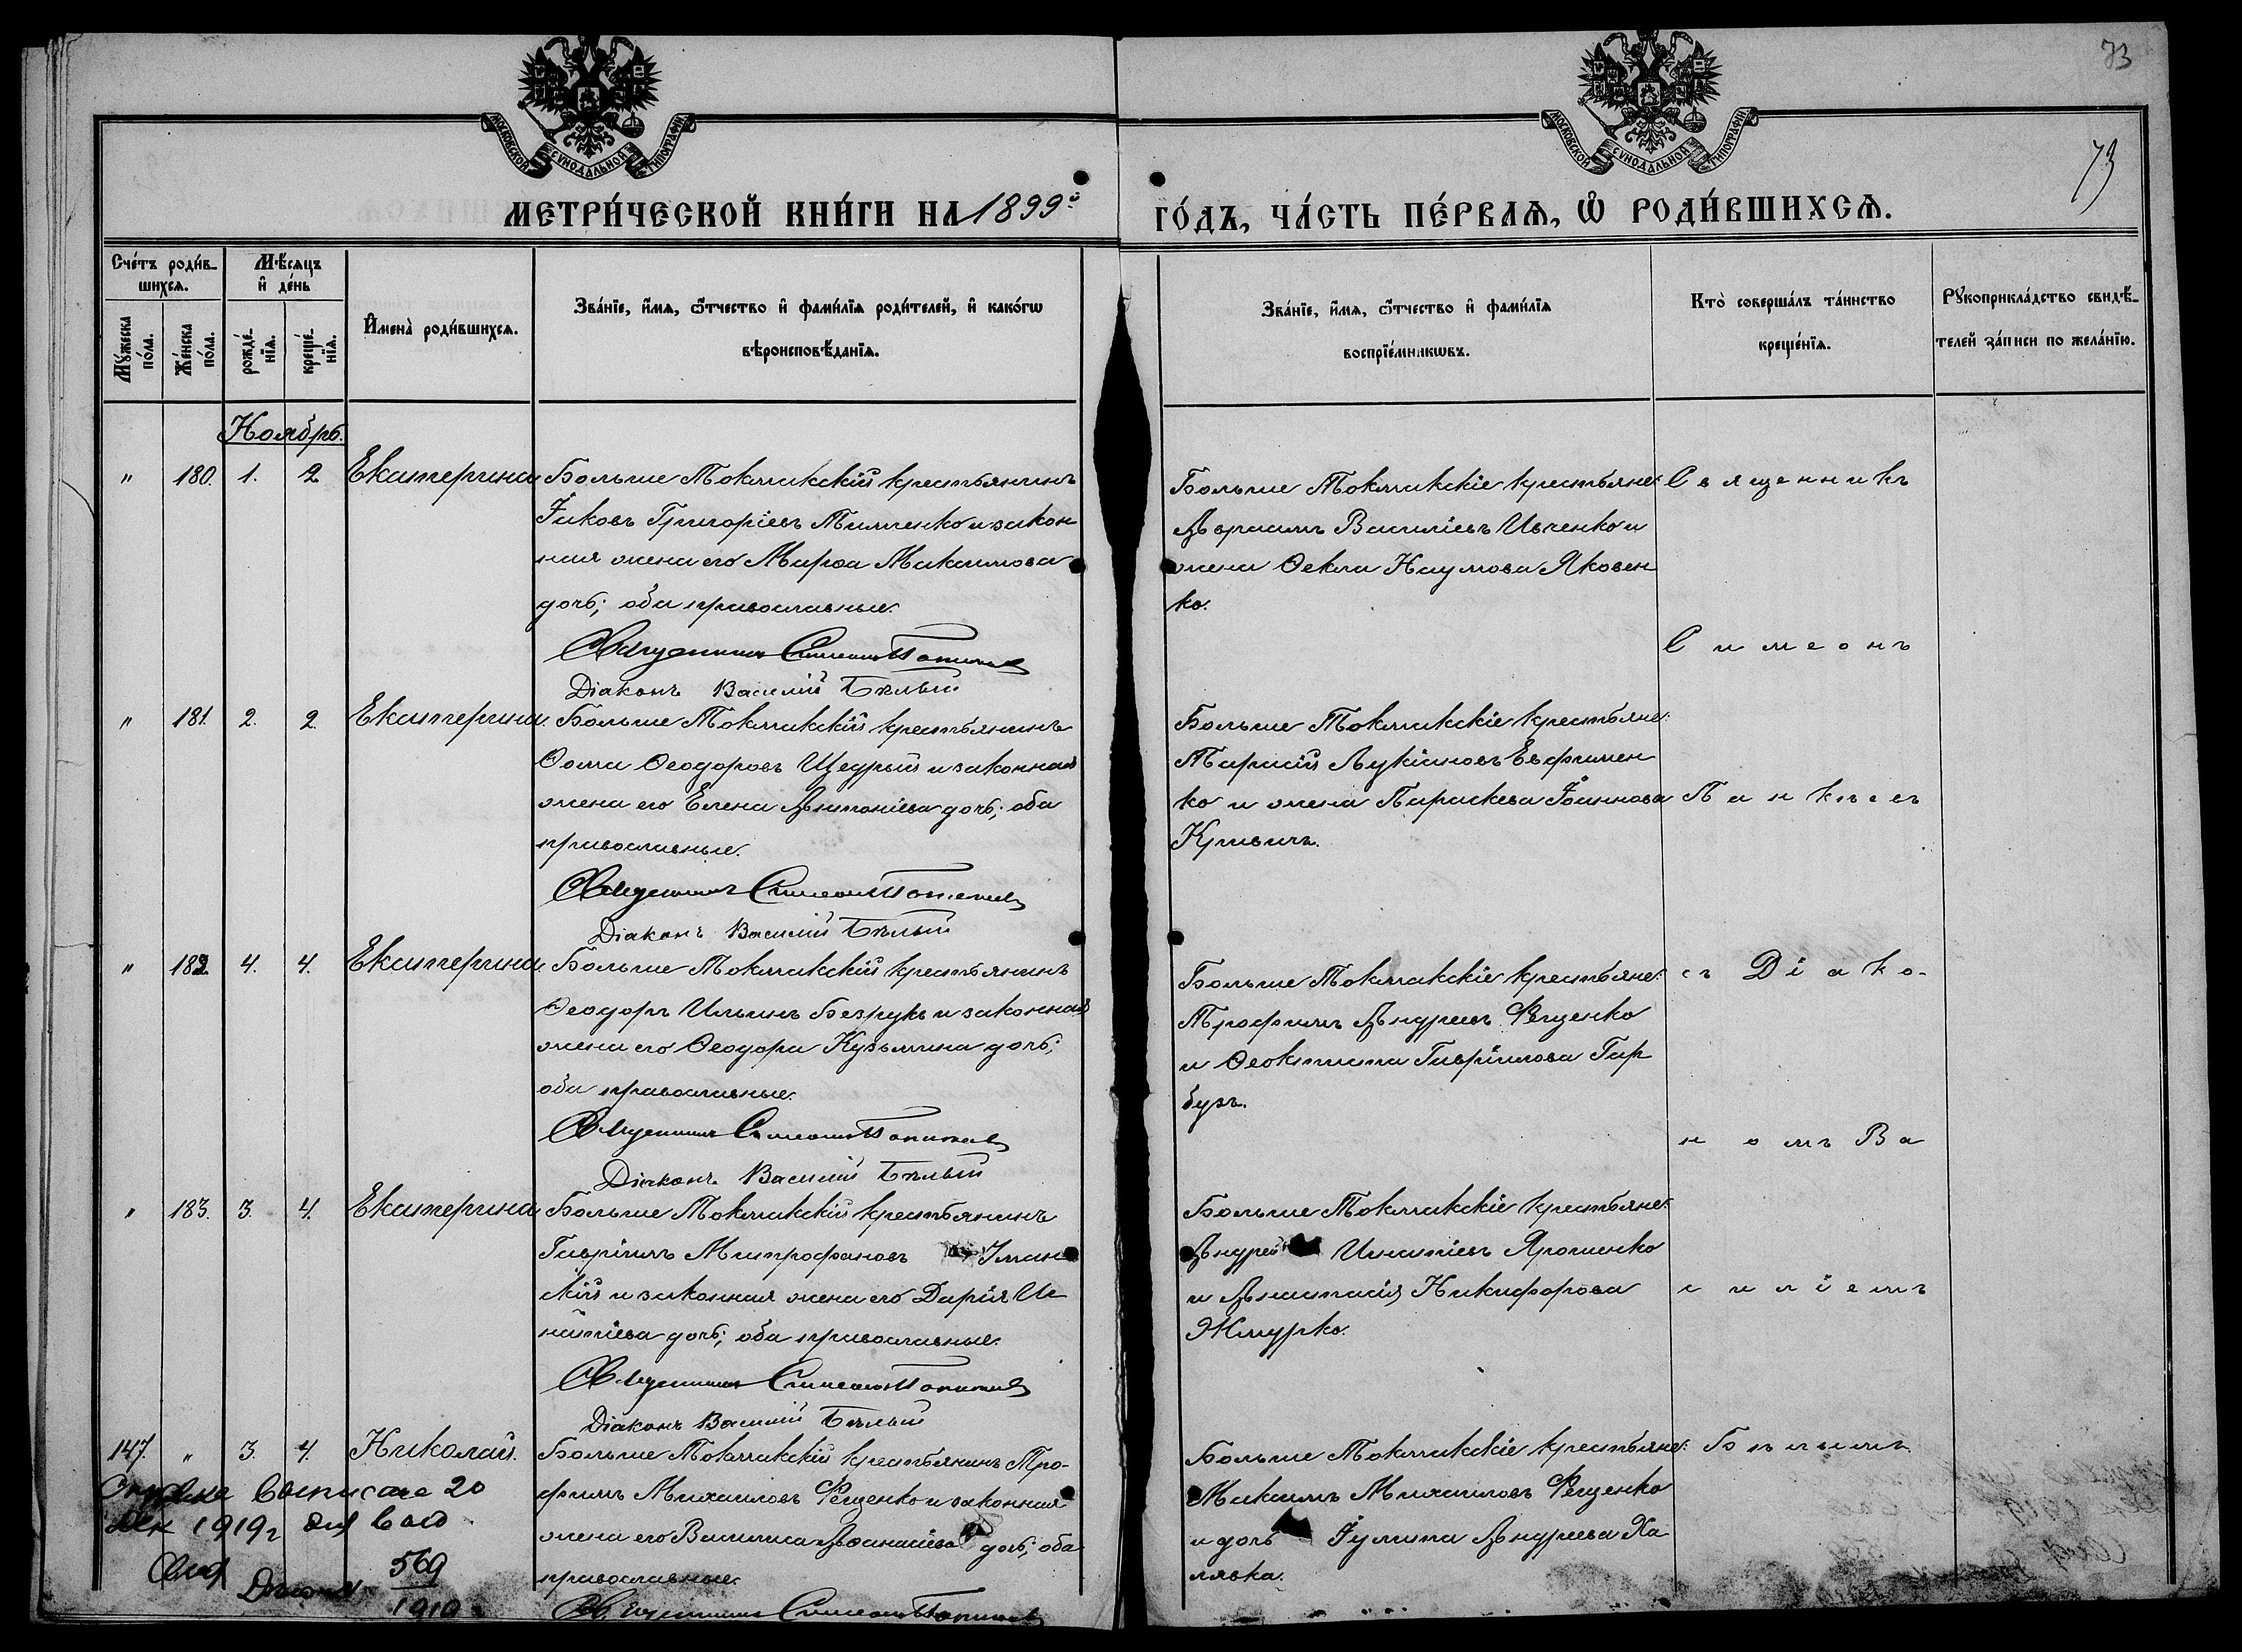 73
73
МОСКОВСКОЙ СѴНОДАЛЬНОЙ ТИПОГРАФІИ
МОСКОВСКОЙ СѴНОДАЛЬНОЙ ТИПОГРАФІИ
МЕТРИ́ЧЕСКОЙ КНИ́ГИ НА 1899й
ГО́ДЪ, ЧА́СТЬ ПЕ́РВАѦ, Ѽ РОДИ́ВШИХСѦ.
Сче́тъ роди́в-
шихсѧ.
Мѣ́сѧцъ
и҆ де́нь
Мꙋ́жеска
по́ла.
Же́нска
по́ла.
рожде́-
нїѧ.
креще́-
нїѧ.
И҆мена̀ роди́вшихсѧ.
Зва́нїе, и҆́мѧ, ѻ҆́тчество и҆ фами́лїѧ роди́телей, и҆ како́гѡ
вѣроисповѣ́данїѧ.
Зва́нїе, и҆́мѧ, ѻ҆́тчество и҆ фами́лїѧ
воспрїе́мникѡвъ.
Кто̀ соверша́лъ та́инство
креще́нїѧ.
Рꙋкоприкла́дство свидѣ́-
телей за́писи по жела́нїю.
Ноябрь.
" 180. 1. 2 Екатерина
Больше Токмакскій крестьянинъ
Іаковъ Григоріевъ Тимченко и закон
ная жена его Марѳа Максимова
дочь; оба православные.
Священникъ Симеонъ
Діаконъ Василій Бѣлый
Больше Токмакскіе крестьяне:
Авраамъ Василіевъ Ивченко и
жена Ѳекла Наумова Яковен
ко.
" 181. 2. 2. Екатерина
Больше Токмакскій крестьянинъ
Ѳома Ѳеодоровъ Щедрый и законная
жена его Елена Антоніева дочь; оба
православные.
Священникъ Симеонъ
Діаконъ Василій Бѣлый
Больше Токмакскіе крестьяне:
Тарасій Лукіановъ Евфимен
ко и жена Параскева Іоаннова
Кривичъ.
" 182. 4. 4. Екатерина
Больше Токмакскій крестьянинъ
Ѳеодоръ Ильинъ Безрукъ и законная
жена его Ѳеодора Кузьмина дочь;
оба православные.
Священникъ Симеонъ
Діаконъ Василій Бѣлый
Больше Токмакскіе крестьяне:
Трофимъ Андреевъ Фещенко
и Ѳеоктиста Гавріилова Гар
бузъ.
" 183. 3. 4. Екатерина
Больше Токмакскій крестьянинъ
Гавріилъ Митрофановъ
скій и законная жена его Дарія Иг
натіева дочь; оба православные.
Священникъ Симеонъ
Діаконъ Василій Бѣлый
Больше Токмакскіе крестьяне:
Андрей Игнатіевъ Ярошенко
и Анастасія Никифорова
Жмурко.
147. " 3. 4. Николай.
Больше Токмакскій крестьянинъ Тро-
фимъ Михаиловъ Фещенко и законная
жена его Василиса Аѳанасіева дочь; оба
православные.
Священникъ Симеонъ
Больше Токмакскіе крестьяне:
Максимъ Михаиловъ Фещенко
и дочь Іулита Андреева Ха
лявка.
Священникъ
Симеонъ
съ Діако-
номъ Ва
силіемъ
Бѣлымъ.
20
Дек 1919г для
569
1919